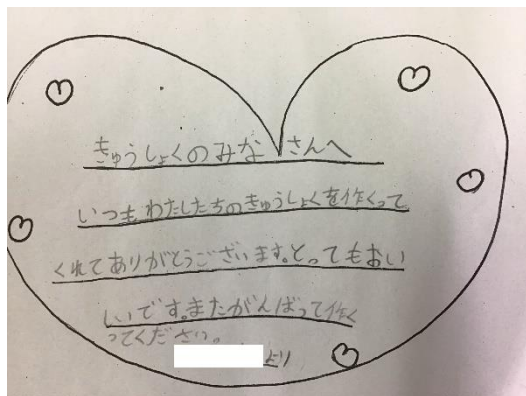 きゅうしょくのみなさんへ
いつもわたしたちのきゅうしょくを作くって
くれてありがとうございます。とってもおい
しいです。またがんばって作く
ってください。
より